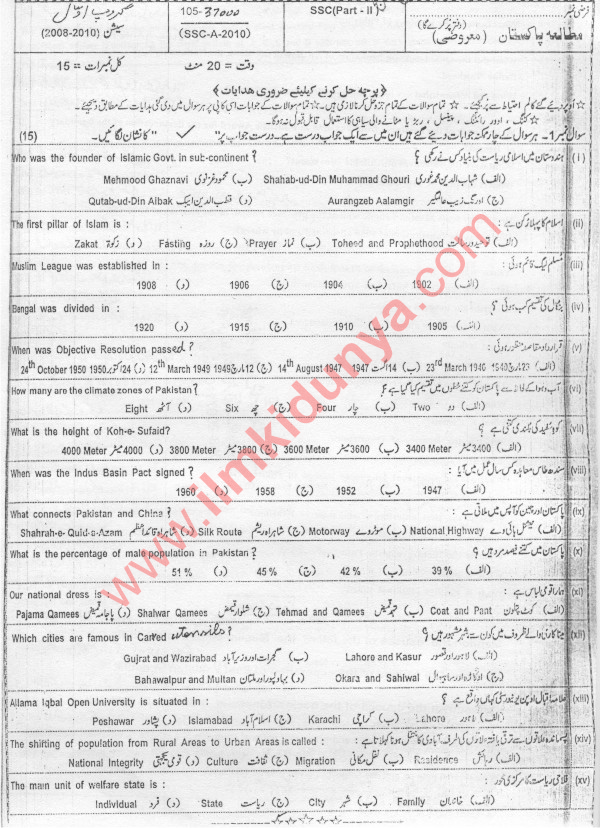 105-37000 SSC(Part - II)
گروپ اوّل
سیشن (2008-2010) (SSC-A-2010) مطالعہ پاکستان (معروضی)
کل نمبرات = 15 وقت = 20 منٹ
﴿ پرچہ حل کرنے کیلئے ضروری ہدایات ﴾
سوال نمبر 1- ہر سوال کے چار ممکنہ جوابات دیئے گئے ہیں ان میں سے ایک جواب درست ہے۔ درست جواب پر " ✓ " کا نشان لگائیں۔ (15)
(i) ہندوستان میں اسلامی ریاست کی بنیاد کس نے رکھی؟ Who was the founder of Islamic Govt. in sub-continent ?
(الف) شہاب الدین محمد غوری Shahab-ud-Din Muhammad Ghouri (ب) محمود غزنوی Mehmood Ghaznavi
(ج) اورنگ زیب عالمگیر Aurangzeb Aalamgir (د) قطب الدین ایبک Qutab-ud-Din Aibak
(ii) اسلام کا پہلا رکن ہے : The first pillar of Islam is :
(الف) توحید و رسالت Toheed and Prophethood (ب) نماز Prayer (ج) روزہ Fasting (د) زکوٰۃ Zakat
(iii) مُسلم لیگ قائم ہوئی : Muslim League was established in :
(الف) 1902 (ب) 1904 (ج) 1906 (د) 1908
(iv) بنگال کی تقسیم کب ہوئی ؟ Bangal was divided in :
(الف) 1905 (ب) 1910 (ج) 1915 (د) 1920
(v) قرارداد مقاصد منظور ہوئی : When was Objective Resolution passed ?
(الف) 23 مارچ 1940 23rd March 1940 (ب) 14 اگست 1947 14th August 1947 (ج) 12 مارچ 1949 12th March 1949 (د) 24 اکتوبر 1950 24th October 1950
(vi) آب و ہوا کے لحاظ سے پاکستان کو کتنے خطوں میں تقسیم کیا گیا ہے ؟ How many are the climate zones of Pakistan ?
(الف) دو Two (ب) چار Four (ج) چھ Six (د) آٹھ Eight
(vii) کوہ سفید کی بلندی کتنی ہے ؟ What is the height of Koh-e- Sufaid?
(الف) 3400 میٹر 3400 Meter (ب) 3600 میٹر 3600 Meter (ج) 3800 میٹر 3800 Meter (د) 4000 میٹر 4000 Meter
(viii) سندھ طاس معاہدہ کس سال عمل میں آیا : When was the Indus Basin Pact signed ?
(الف) 1947 (ب) 1952 (ج) 1958 (د) 1960
(ix) پاکستان اور چین کو آپس میں ملاتی ہے : What connects Pakistan and China ?
(الف) نیشنل ہائی وے National Highway (ب) موٹروے Motorway (ج) شاہراہ ریشم Silk Route (د) شاہراہ قائداعظم Shahrah-e- Quid-e-Azam
(x) پاکستان میں کتنے فیصد مرد ہیں ؟ What is the percentage of male population in Pakistan ?
(الف) 39 % (ب) 42 % (ج) 45 % (د) 51 %
(xi) ہمارا قومی لباس ہے : Our national dress is :
(الف) کوٹ پتلون Coat and Pant (ب) تہمد قمیض Tehmad and Qamees (ج) شلوار قمیض Shalwar Qamees (د) پاجامہ قمیض Pajama Qamees
(xii) مینا کاری والے ظروف میں کون سے شہر مشہور ہیں؟ Which cities are famous in Carved utensils?
(الف) لاہور اور قصور Lahore and Kasur (ب) گجرات اور وزیر آباد Gujrat and Wazirabad
(ج) اوکاڑہ اور ساہیوال Okara and Sahiwal (د) بہاولپور اور ملتان Bahawalpur and Multan
(xiii) علامہ اقبال اوپن یونیورسٹی کہاں واقع ہے ؟ Allama Iqbal Open University is situated in :
(الف) لاہور Lahore (ب) کراچی Karachi (ج) اسلام آباد Islamabad (د) پشاور Poshawar
(xiv) پسماندہ علاقوں سے ترقی یافتہ علاقوں کی طرف آبادی کا منتقل ہونا کہلاتا ہے : The shifting of population from Rural Areas to Urban Areas is called :
(الف) رہائش Residence (ب) نقل مکانی Migration (ج) ثقافت Culture (د) قومی یکجہتی National Integrity
(xv) فلاحی ریاست کا مرکزی محور : The main unit of welfare state is :
(الف) خاندان Family (ب) شہر City (ج) ریاست State (د) فرد Individual
www.ilmkidunya.com